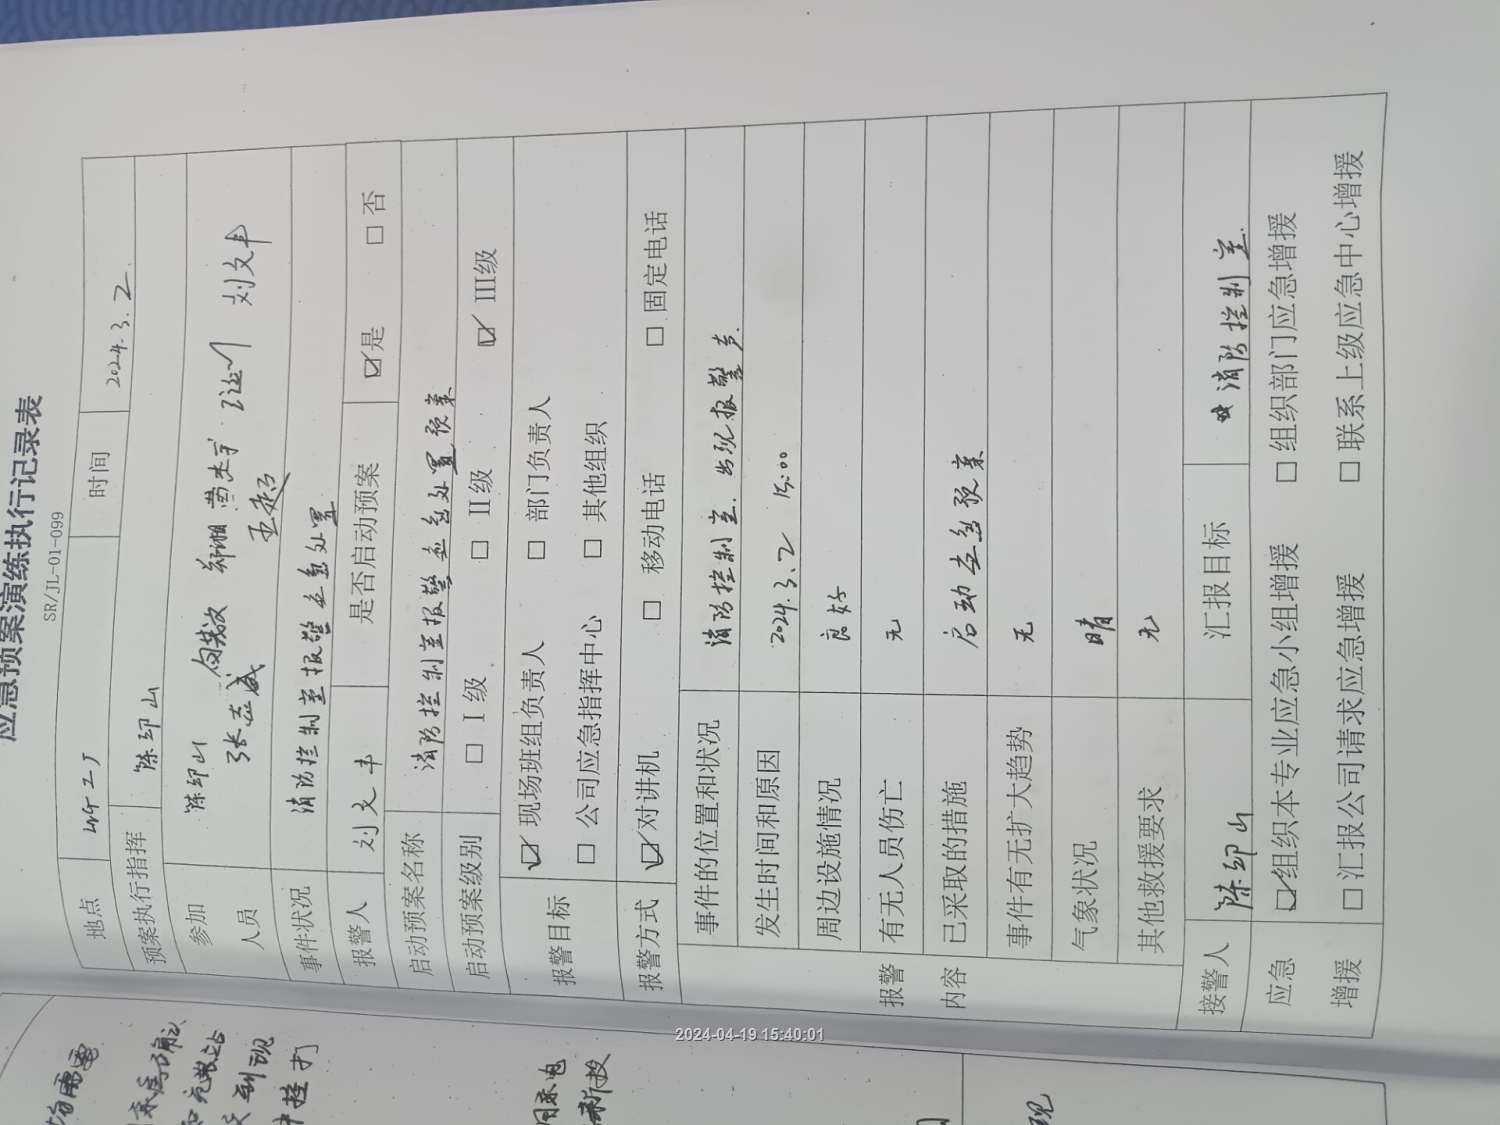 应急预案演练执行记录表
SR/JL-01-099
地点 时间 2024.3.2
预案执行指挥 陈印山
参加 陈印山 刘文丰
人员 王超
事件状况 消防控制室报警应急处置
报警人 刘文丰 是否启动预案 ☑是 □否
启动预案名称 消防控制室报警应急处置预案
启动预案级别 □ I级 □ II级 ☑ III级
报警目标 ☑ 现场班组负责人 □ 部门负责人
□ 公司应急指挥中心 □ 其他组织
报警方式 ☑ 对讲机 □ 移动电话 □ 固定电话
报警
内容
事件的位置和状况 消防控制室.出现报警声.
发生时间和原因 2024.3.2 15:00
周边设施情况 良好
有无人员伤亡 无
已采取的措施 启动应急预案
事件有无扩大趋势 无
气象状况 晴
其他救援要求 无
接警人 陈印山 汇报目标 消防控制室.
应急 ☑组织本专业应急小组增援 □ 组织部门应急增援
增援 □ 汇报公司请求应急增援 □ 联系上级应急中心增援
2024-04-19 15:40:01